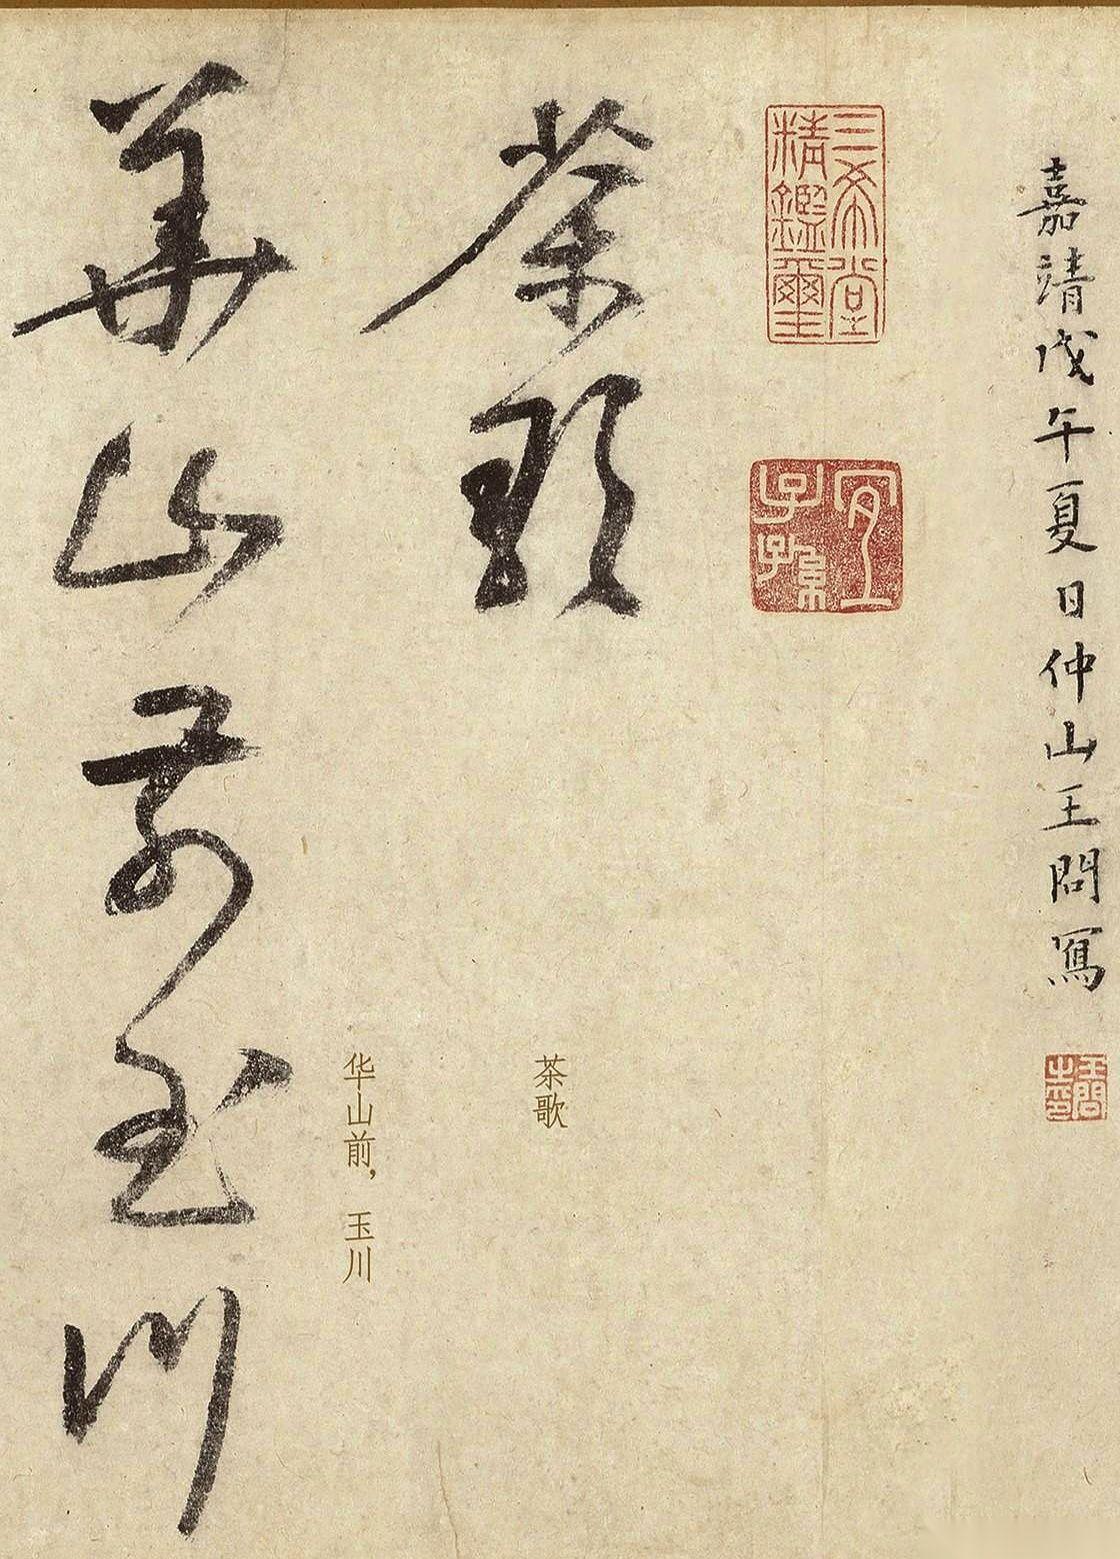 嘉靖戊午夏日仲山王問寫
王問之印
三希堂精鑑璽
宜子孫
茶歌
茶歌
華山前玉川
华山前，玉川